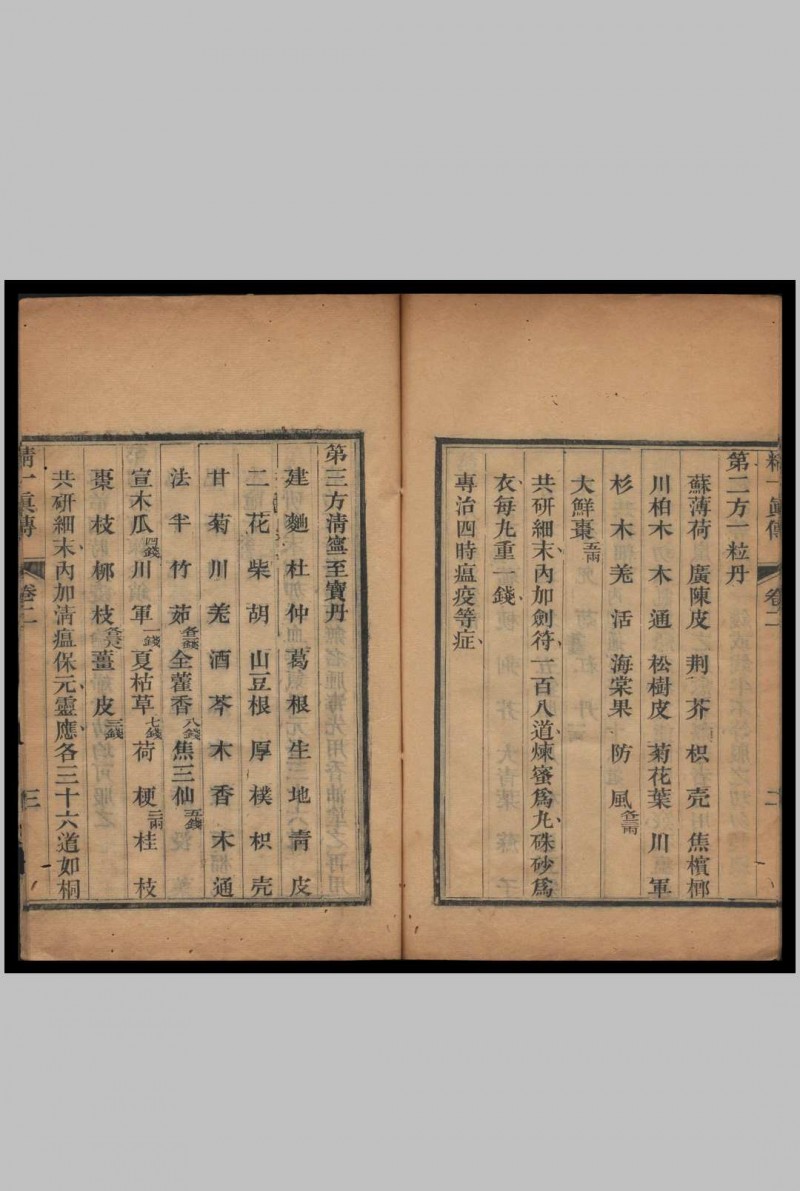 精一眞傳 卷二 二
第二方一粒丹
蘇薄荷 廣陳皮 荆芥 枳壳 焦檳榔
川柏木 木通 松樹皮 菊花葉 川軍
杉木 羌活 海棠果 防風各二兩
大鮮棗五兩
共研細末內加劍符一百八道煉蜜爲丸硃砂爲
衣每丸重一錢
專治四時瘟疫等症
第三方清寧至寶丹
建麯 杜仲 葛根 生地 靑皮
二花 柴胡 山豆根 厚樸 枳壳
甘菊 川羌 酒芩 木香 木通
法半 竹茹各兩 全藿香八錢 焦三仙五錢
宣木瓜四錢 川軍一錢 夏枯草七錢 荷梗二兩 桂枝
棗枝 柳枝 薑皮三錢
共研細末內加淸瘟保元靈應各三十六道如桐
精一眞傳 卷二 三